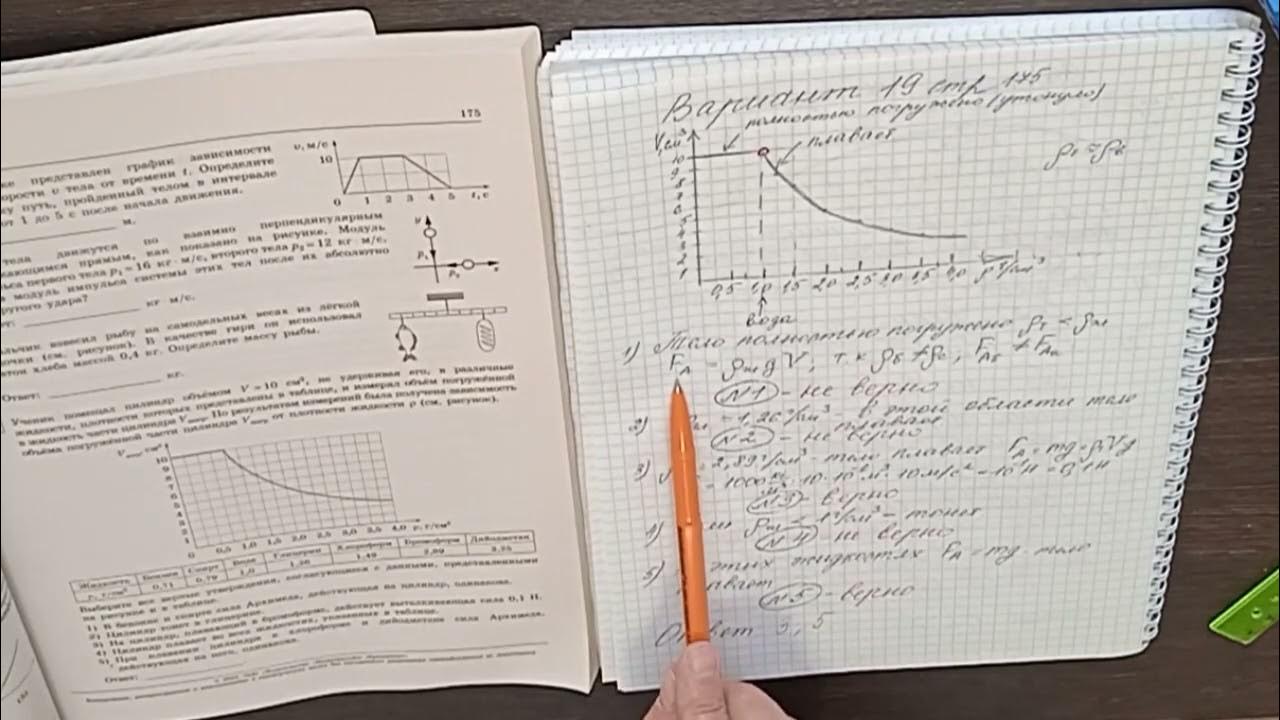 175
представлен график зависимости
тела от времени t. Определите
путь, пройденный телом в интервале
от 1 до 5 с после начала движения.
м.
υ, м/с
10
0 1 2 3 4 5 t, с
тела движутся по взаимно перпендикулярным
прямым, как показано на рисунке. Модуль
первого тела p₁ = 16 кг · м/с, второго тела p₂ = 12 кг · м/с.
модуль импульса системы этих тел после их абсолютно
удара?
кг м/с.
y
p₁
p₂
x
взвесил рыбу на самодельных весах из лёгкой
(см. рисунок). В качестве гири он использовал
хлеба массой 0,4 кг. Определите массу рыбы.
Ответ:
кг.
Ученик помещал цилиндр объёмом V = 10 см³, не удерживая его, в различные
жидкости, плотности которых представлены в таблице, и измерял объём погружённой
в жидкость части цилиндра. По результатам измерений была получена зависимость
объёма погружённой части цилиндра от плотности жидкости ρ (см. рисунок).
10
9
8
7
6
5
4
3
2
1
0 0,5 1,0 1,5 2,0 2,5 3,0 3,5 4,0 ρ, г/см³
Жидкость Бензин Спирт Вода Глицерин Хлороформ Бромоформ Дийодметан
ρ, г/см³ 0,71 0,79 1,0 1,26 1,49 2,89 3,25
Выберите все верные утверждения, согласующиеся с данными, представленными
на рисунке и в таблице.
1) В бензине и спирте сила Архимеда, действующая на цилиндр, одинакова.
2) Цилиндр тонет в глицерине.
3) На цилиндр, плавающий в бромоформе, действует выталкивающая сила 0,1 Н.
4) Цилиндр плавает во всех жидкостях, указанных в таблице.
5) При плавании цилиндра в хлороформе и дийодметане сила Архимеда,
действующая на него, одинакова.
Ответ:
Вариант 19 стр 175
полностью погружено (утонуло)
V, см³
плавает
ρт = ρв
10
9
8
7
6
5
4
3
2
1
0,5 1,0 1,5 2,0 2,5 3,0 3,5 4,0 ρ г/см³
вода
1) Тело полностью погружено ρт < ρж
FA = ρжgV, т.к ρб ≠ ρс,
№1 - не верно
2) 1,26 г/см³ - в этой области тело
плавает
№2 - не верно
3) 2,89 г/см³ - тело плавает FA = mg = ρтVg
№3 - верно
4) ρж < 1 г/см³ - тонет
№4 - не верно
5) этих жидкостях FA = mg тело
плавает
№5 - верно
Ответ 3, 5